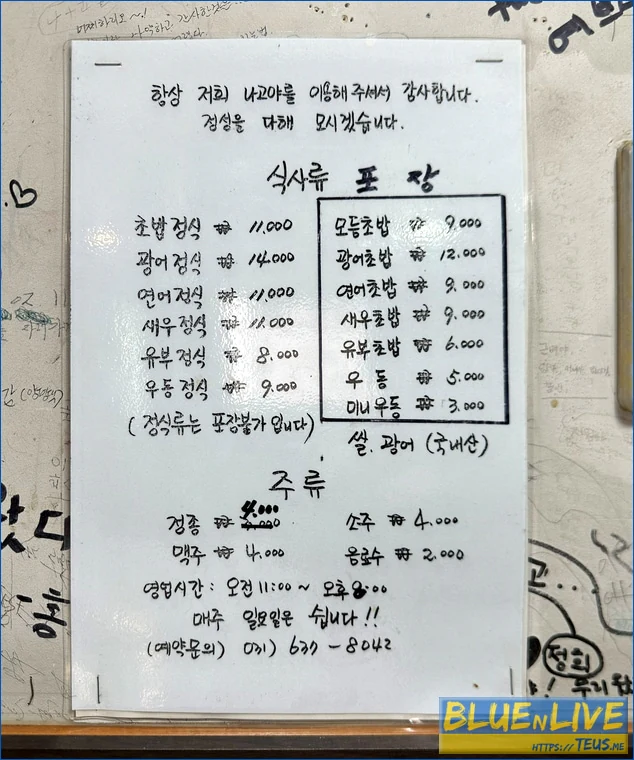 항상 저희 나고야를 이용해 주셔서 감사합니다.
정성을 다해 모시겠습니다.
식사류 포장
초밥정식 ₩ 11.000
광어정식 ₩ 14.000
연어정식 ₩ 11,000
새우정식 ₩ 11.000
유부정식 ₩ 8.000
우동정식 ₩ 9.000
(정식류는 포장불가입니다)
모듬초밥 ₩ 9.000
광어초밥 ₩ 12.000
연어초밥 ₩ 9.000
새우초밥 ₩ 9.000
유부초밥 ₩ 6.000
우동 ₩ 5.000
미니우동 ₩ 3.000
쌀. 광어 (국내산)
주류
정종 ₩ 4.000
소주 ₩ 4.000
맥주 ₩ 4.000
음료수 ₩ 2.000
영업시간 : 오전 11:00 ~ 오후 8:00
매주 일요일은 쉽니다!!
(예약문의) 031) 637-8042
정희
BLUENLIVE
HTTPS://TEUS.ME